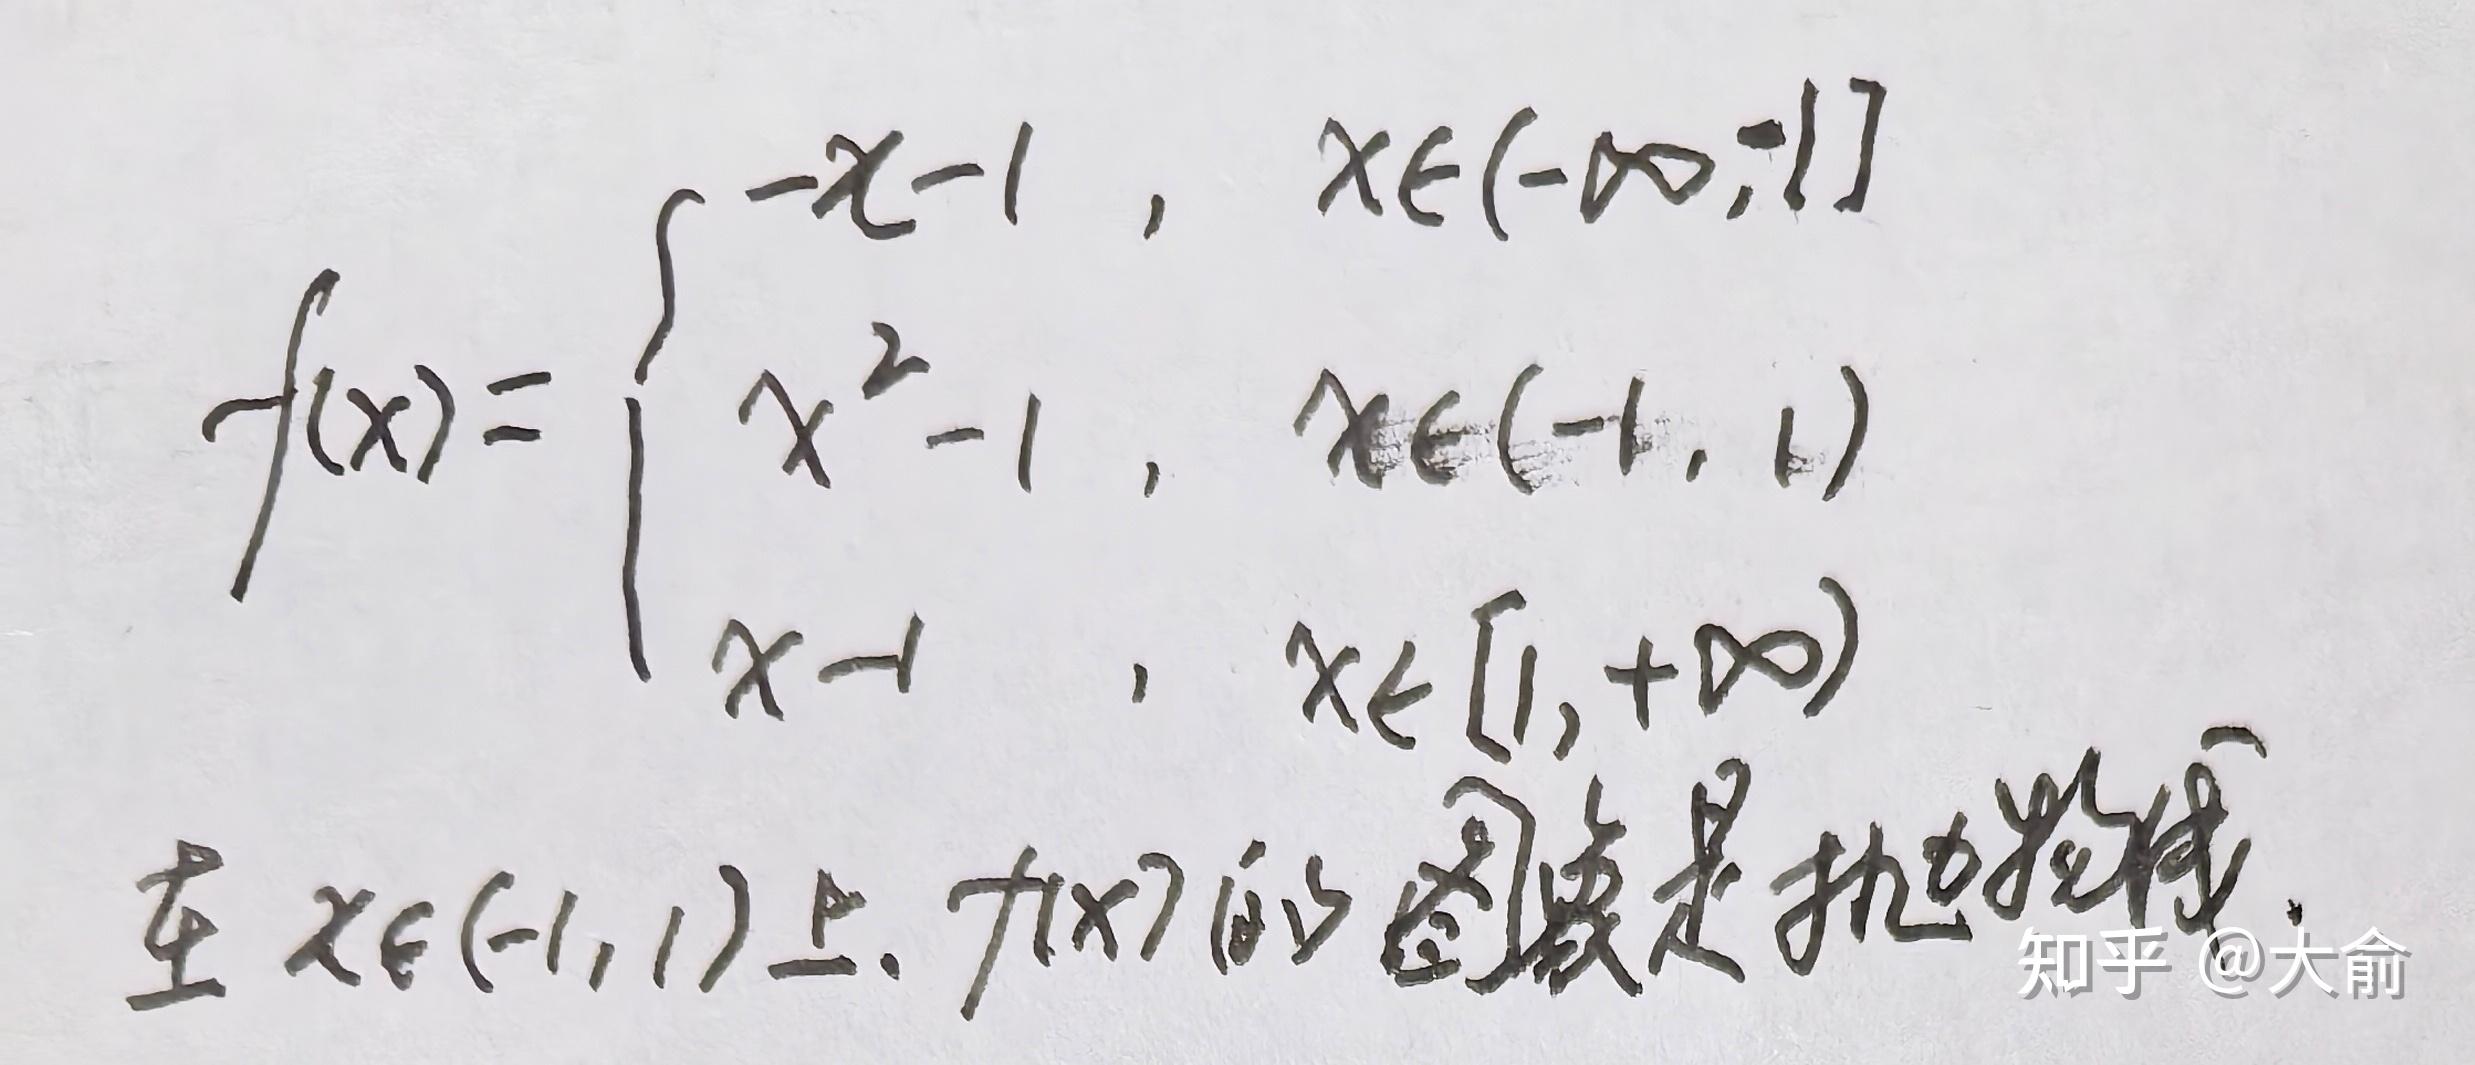 -x-1 , x∈(-∞,-1]
f(x)= { x²-1 , x∈(-1,1)
x-1 , x∈[1,+∞)
在x∈(-1,1)上.f(x)的图像是抛物线.
知乎 @大俞